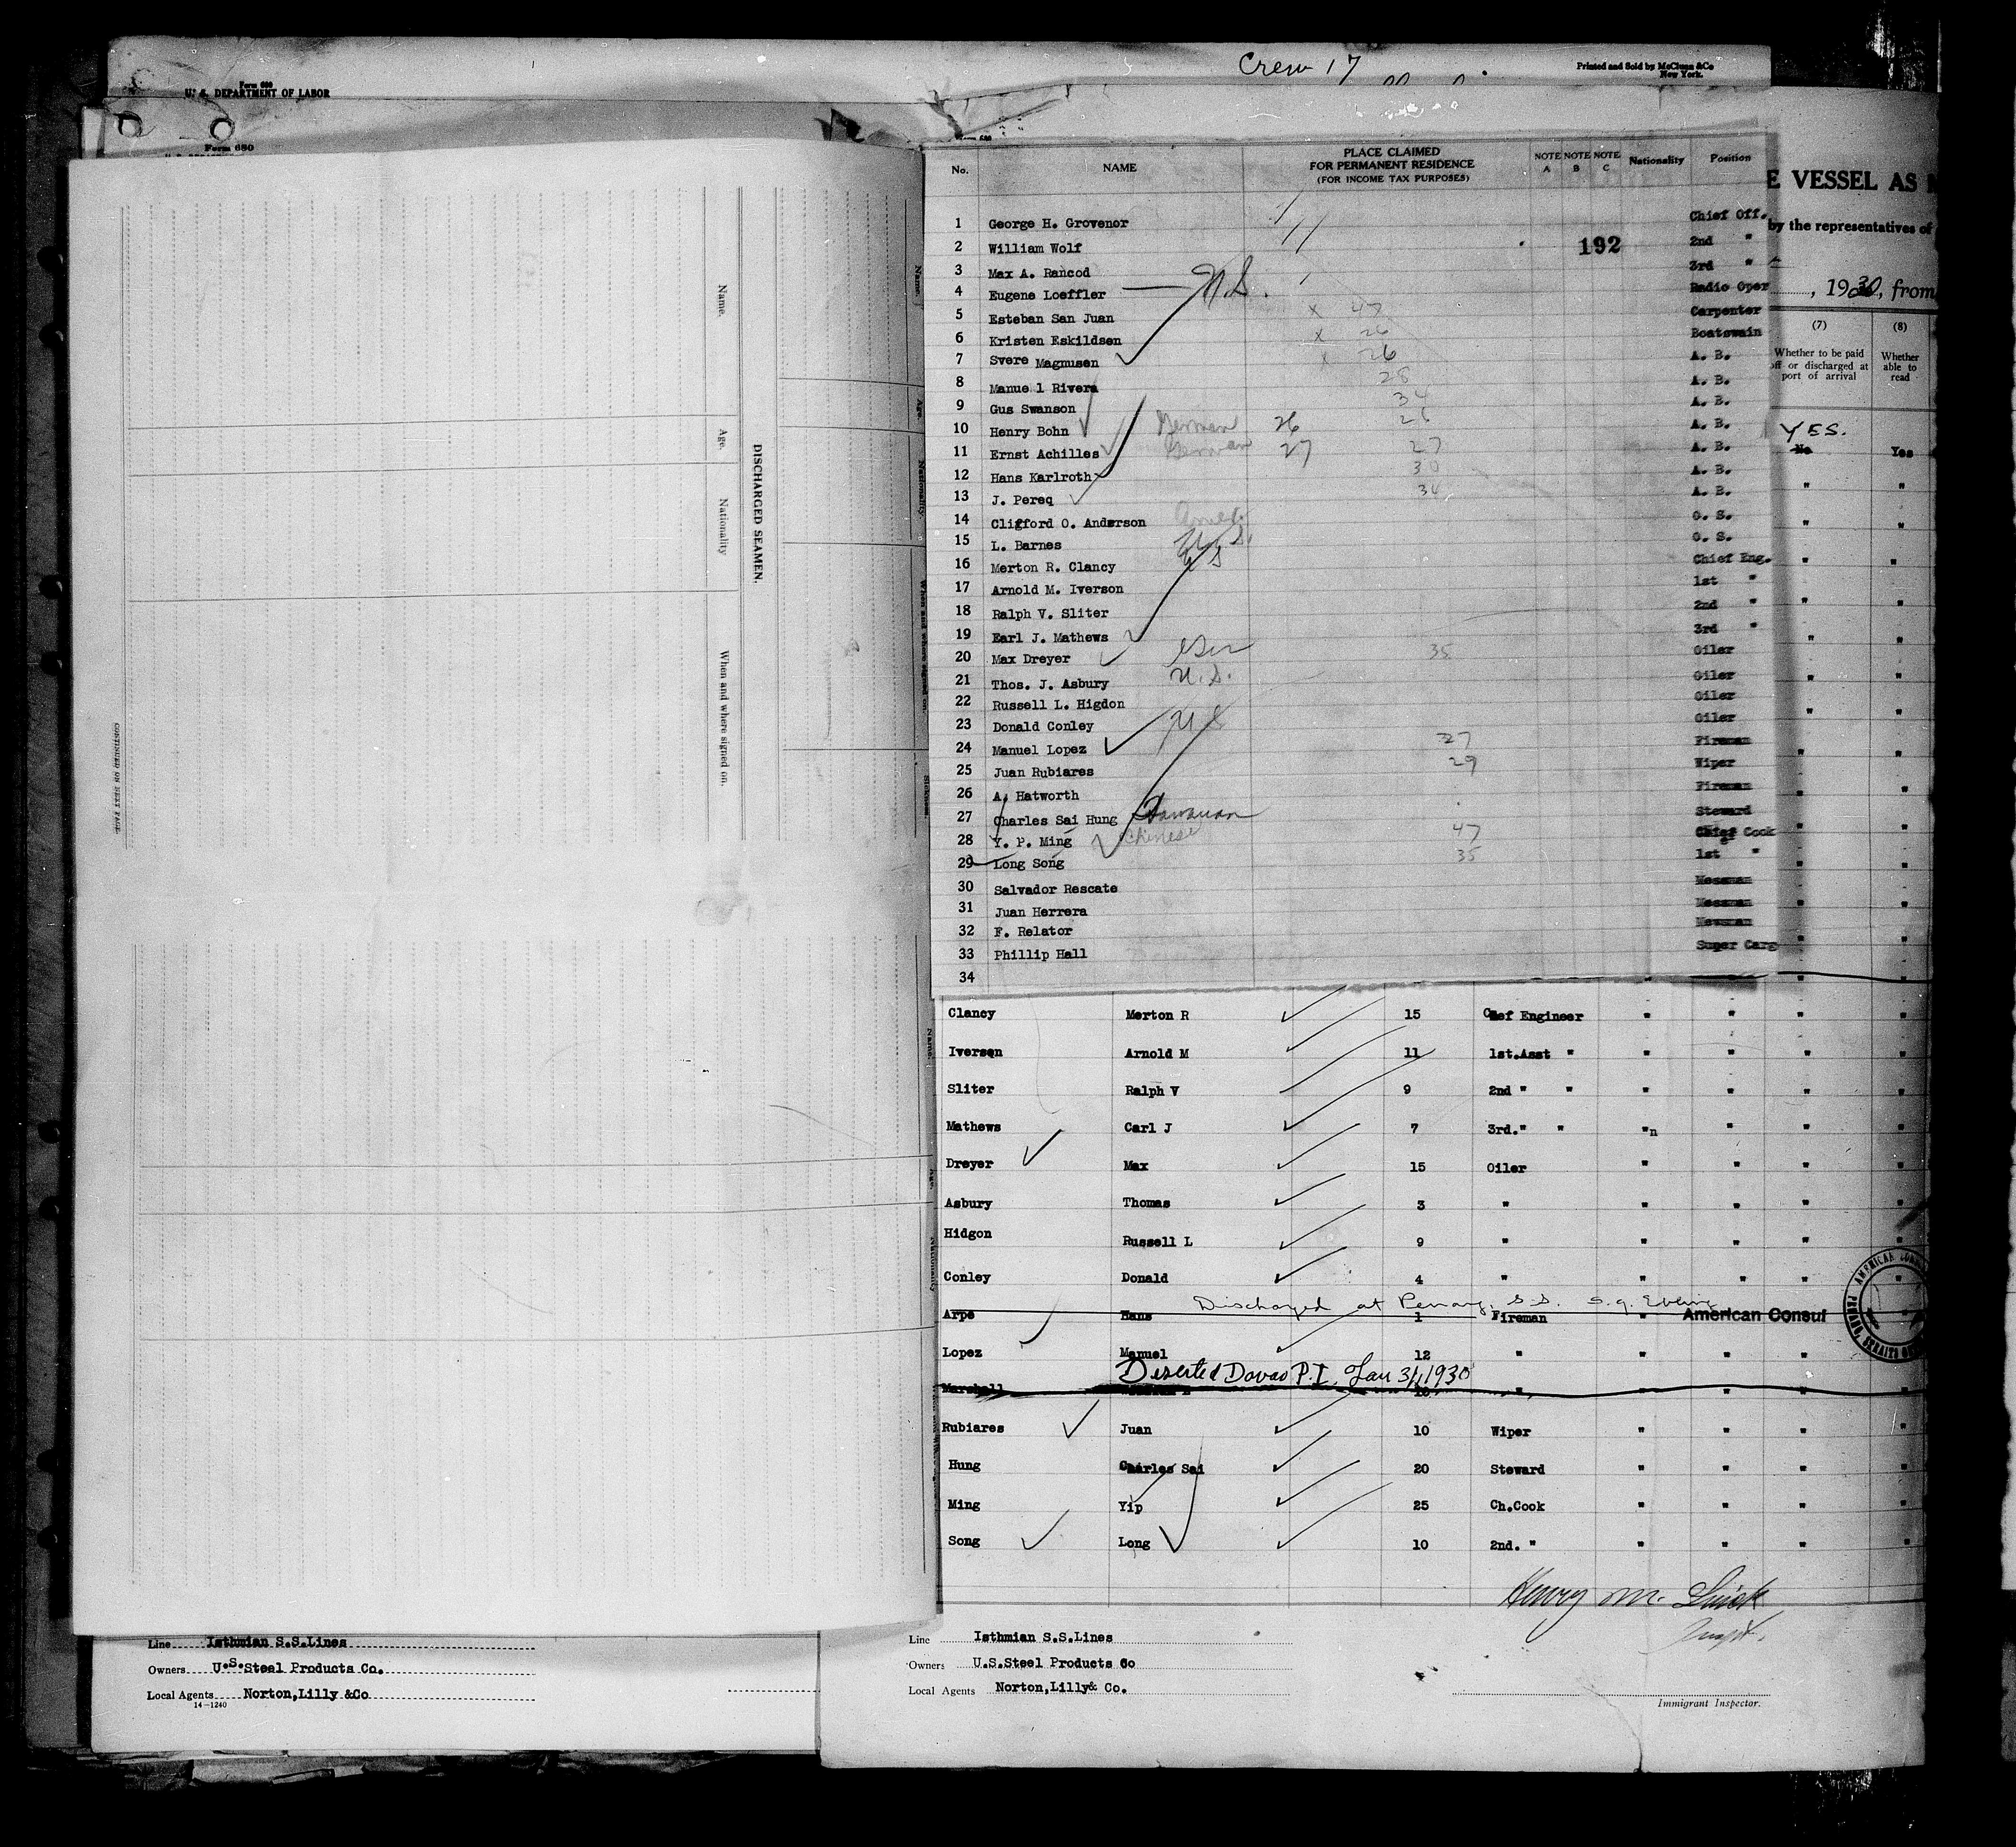 Crew 17
Printed and Sold by McClunn &Co
New York.
Form 680
U. S. DEPARTMENT OF LABOR
Form 680
No. NAME PLACE CLAIMED FOR PERMANENT RESIDENCE (FOR INCOME TAX PURPOSES) NOTE A NOTE B NOTE C Nationality Position
1 George H. Grovenor Chief Off.
2 William Wolf 192 2nd "
3 Max A. Rancod 3rd "
4 Eugene Loeffler U.S. Radio Oper
5 Esteban San Juan x 47 Carpenter
6 Kristen Eskildsen x 26 Boatswain
7 Svere Magnusen x 26 A. B.
8 Manuel Rivera 28 A. B.
9 Gus Swanson 34 A. B.
10 Henry Bohn German 26 26 A. B.
11 Ernst Achilles German 27 27 A. B.
12 Hans Karlroth 30 A. B.
13 J. Pereq 34 A. B.
14 Clifford O. Anderson O. S.
15 L. Barnes U.S. O. S.
16 Merton R. Clancy U S Chief Eng.
17 Arnold M. Iverson 1st "
18 Ralph V. Sliter 2nd "
19 Earl J. Mathews 3rd "
20 Max Dreyer 35 Oiler
21 Thos. J. Asbury U.S. Oiler
22 Russell L. Higdon Oiler
23 Donald Conley U S Oiler
24 Manuel Lopez 27 Fireman
25 Juan Rubiares 29 Wiper
26 A. Hatworth Fireman
27 Charles Sai Hung Hawaiian Steward
28 Y. P. Ming Chinese 47 Chief Cook
29 Long Song 35 1st "
30 Salvador Rescate Messman
31 Juan Herrera Messman
32 F. Relator Messman
33 Phillip Hall Super Carg
34
E VESSEL AS
by the representatives of
, 1930, from
(7) (8)
Whether to be paid off or discharged at port of arrival
Whether able to read
YES.
No Yes
" "
" "
" "
" "
" "
" "
" "
" "
" "
" "
" "
" "
" "
" "
Clancy Merton R 15 Chief Engineer " " " "
Iversen Arnold M 11 1st.Asst " " " " "
Sliter Ralph V 9 2nd " " " " " "
Mathews Carl J 7 3rd." " "n " " "
Dreyer Max 15 Oiler " " " "
Asbury Thomas 3 " " " " "
Hidgon Russell L 9 " " " " "
Conley Donald 4 " " " " "
Discharged at Penang, S.S.
Arpe Hans 1 Fireman " American Consul
Lopez Manuel 12 " " " " "
Deserted Davao P.I. Jan 31, 1930
Marshall 10 " " " " "
Rubiares Juan 10 Wiper " " " "
Hung Charles Sai 20 Steward " " " "
Ming Yip 25 Ch.Cook " " " "
Song Long 10 2nd. " " " " "
Henry M.
Line Isthmian S.S.Lines
Owners U.S.Steel Products Co
Local Agents Norton,Lilly& Co.
Immigrant Inspector.
Line Isthmian S.S.Lines
Owners U.S.Steel Products Co.
Local Agents Norton,Lilly &Co
14-1240
DISCHARGED SEAMEN.
Name.
Age.
Nationality
When and where signed on.
CONTINUED ON NEXT PAGE.
Name.
Age.
Nationality.
When and where signed on.
Name.
Age.
Nationality